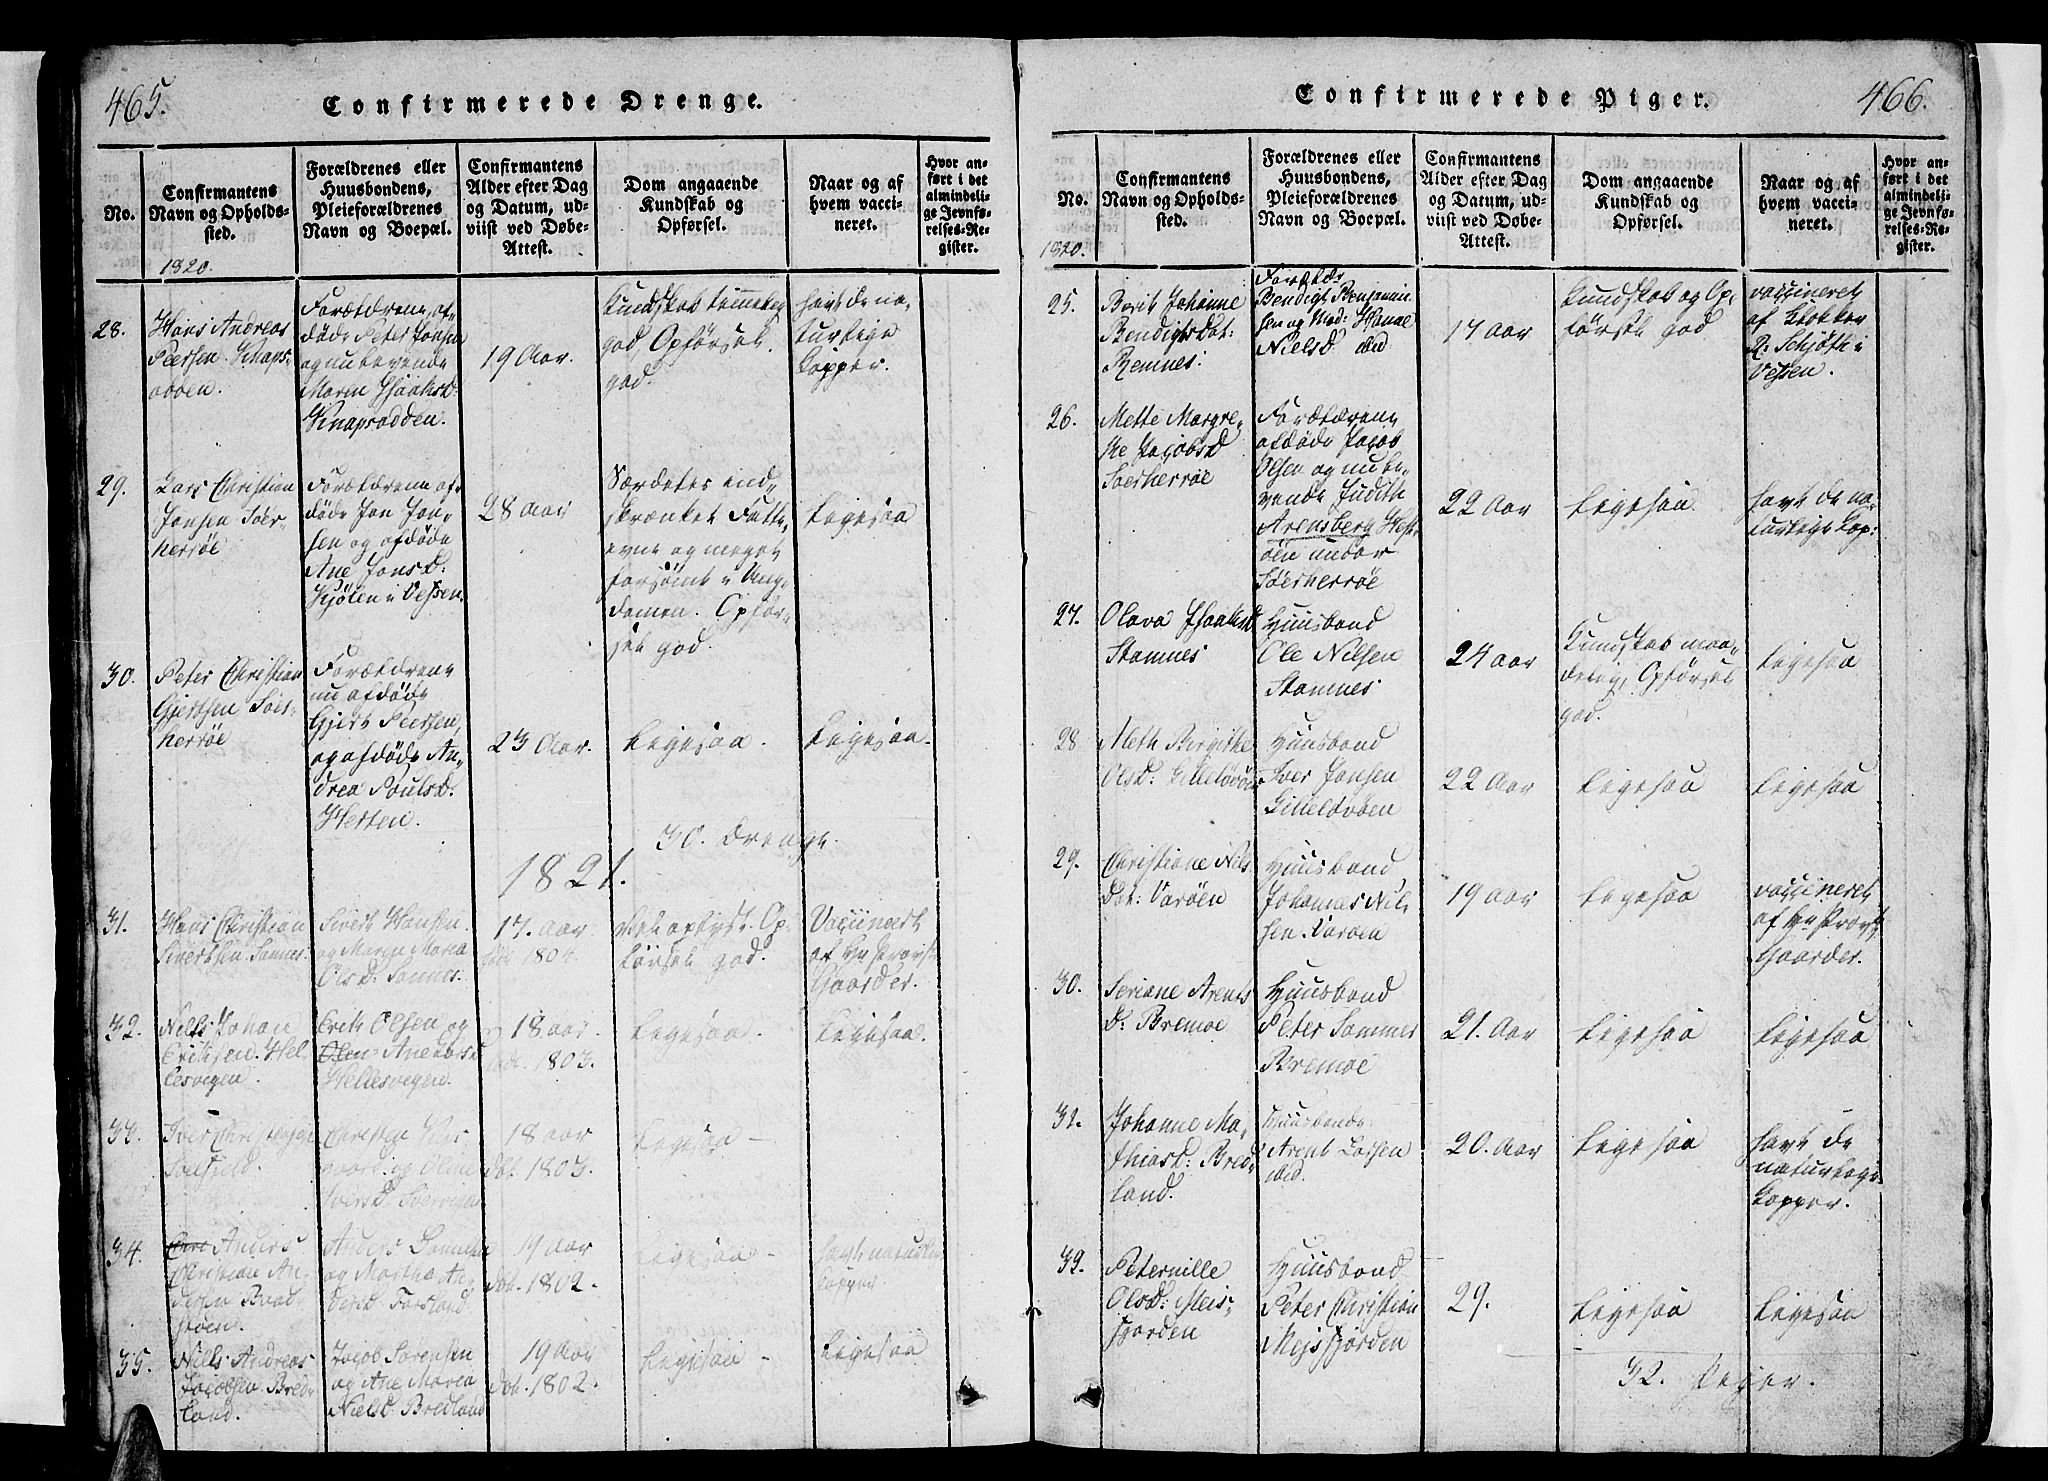 465.
Confirmerede Drenge.
No.
Confirmantens
Navn og Opholds-
sted.
Forældrenes eller
Huusbondens,
Pleieforældrenes
Navn og Boepæl.
Confirmantens
Alder efter Dag
og Datum, ud-
viist ved Døbe-
Attest.
Dom angaaende
Kundskab og
Opførsel.
Naar og af
hvem vacci-
neret.
Hvor an-
ført i det
almindeli-
ge Jevnfø-
relses-Re-
gister.
1820.
28.
Hans Andreas
Peersen
Forældrene af-
døde Peter Jonsen
og nulevende
Maren Isaaksd:
Knapradden.
19 Aar.
Kundskab temmelig
god, Opførsel
god.
havt de na-
turlige
Kopper.
29.
Lars Christian
Jonsen Søer-
herrøe
Forældrene af-
døde Jon Jon-
sen og afdøde
Ane Jonsd:
Kjølen i Vefsen.
28 Aar
Særdeles ind-
skrænket Fatte-
evne og meget
forsømt i Ung-
dommen. Opfør-
sel god.
Ligesaa
30.
Peter Christian
Gjertsen Søer-
herrøe
Forældrene
nu afdøde
Gjert Peersen,
og afdøde An-
drea Poulsd:
Herten.
23 Aar.
Ligesaa.
Ligesaa.
30. Drenge.
1821.
31.
Hans Christian
Sivertsen Sannes
Sivert Hansen
og Maren Maria
Olsd: Sannes.
17. aar
døb. 1804.
Vel oplyst. Op-
førsel god.
Vaccineret
af Hr Provst
Gaarder.
32.
Nills Johan
Eriksen. Hel-
lesvigen.
Erik Olsen og
Ane
Hellesvigen.
18 aar
døb. 1803.
Ligesaa.
Ligesaa.
33.
Iver Christensen
Christen
og Oline
Iversd:
18 aar
døbt 1803.
Ligesaa
34.
Anders
Christian An-
dersen
Anders
og Martha An-
dersd: Forsland.
19 aar
døb. 1802.
Ligesaa
havt naturlige
Kopper.
35.
Nills Andreas
Jacobsen Bred-
land.
Jacob Sørensen
og Ane Maria
Nielsd Bredland
19 Aar
døb. 1802.
Ligesaa
Ligesaa
Confirmerede Piger.
466.
No.
Confirmantens
Navn og Opholds-
sted.
Forældrenes eller
Huusbondens,
Pleieforældrenes
Navn og Boepæl.
Confirmantens
Alder efter Dag
og Datum, ud-
viist ved Døbe-
Attest.
Dom angaaende
Kundskab og
Opførsel.
Naar og af
hvem vacci-
neret.
Hvor an-
ført i det
almindeli-
ge Jevnfø-
relses-Re-
gister.
1820.
25.
Berit Johanne
Bendigtsdat:
Remnes.
Forældre
Bendigt Benjamin-
sen og Mad: Hanne
Nielsd
17 aar
Kundskab og Op-
førsel god
vaccineret
af Klokker
R. Schjøth i
Vefsen.
26.
Mette Margre-
the Jacobsd
Søerherrøe
Forældrene
afdøde Jacob
Olsen og nule-
vende Judith
Arensberg
under
Søerherrøe
22 Aar
Ligesaa
havt de na-
turlige Kop:
27.
Olava Isaaksd
Stamnes
Huusbond
Ole Nilsen
Stamnes
24 aar
Kundskab maa-
delig, Opførsel
god.
Ligesaa
28
Aleth Birgithe
Olsd:
Huusbond
Iver Jonsen
22 Aar
Ligesaa
Ligesaa
29.
Christiane Nils
dat: Varøen
Huusbond
Johannes Nil-
sen. Varøen
19 aar
Ligesaa
vaccineret
af Hr Provst
Gaarder.
30.
Seriane Arents
d: Bremoe
Huusbond
Peter Sammes
Bremoe
21. Aar
Ligesaa
Ligesaa
31.
Johanne Ma-
thiasd: Bred-
land.
Huusbond
Arent Larsen
ibid.
20. Aar
Ligesaa
havt de
naturlige
Kopper.
32.
Peternille
Olsd: Meis-
fjorden
Huusbond
Peter Christian
Mejsfjorden
29.
Ligesaa
Ligesaa
32. Piger.